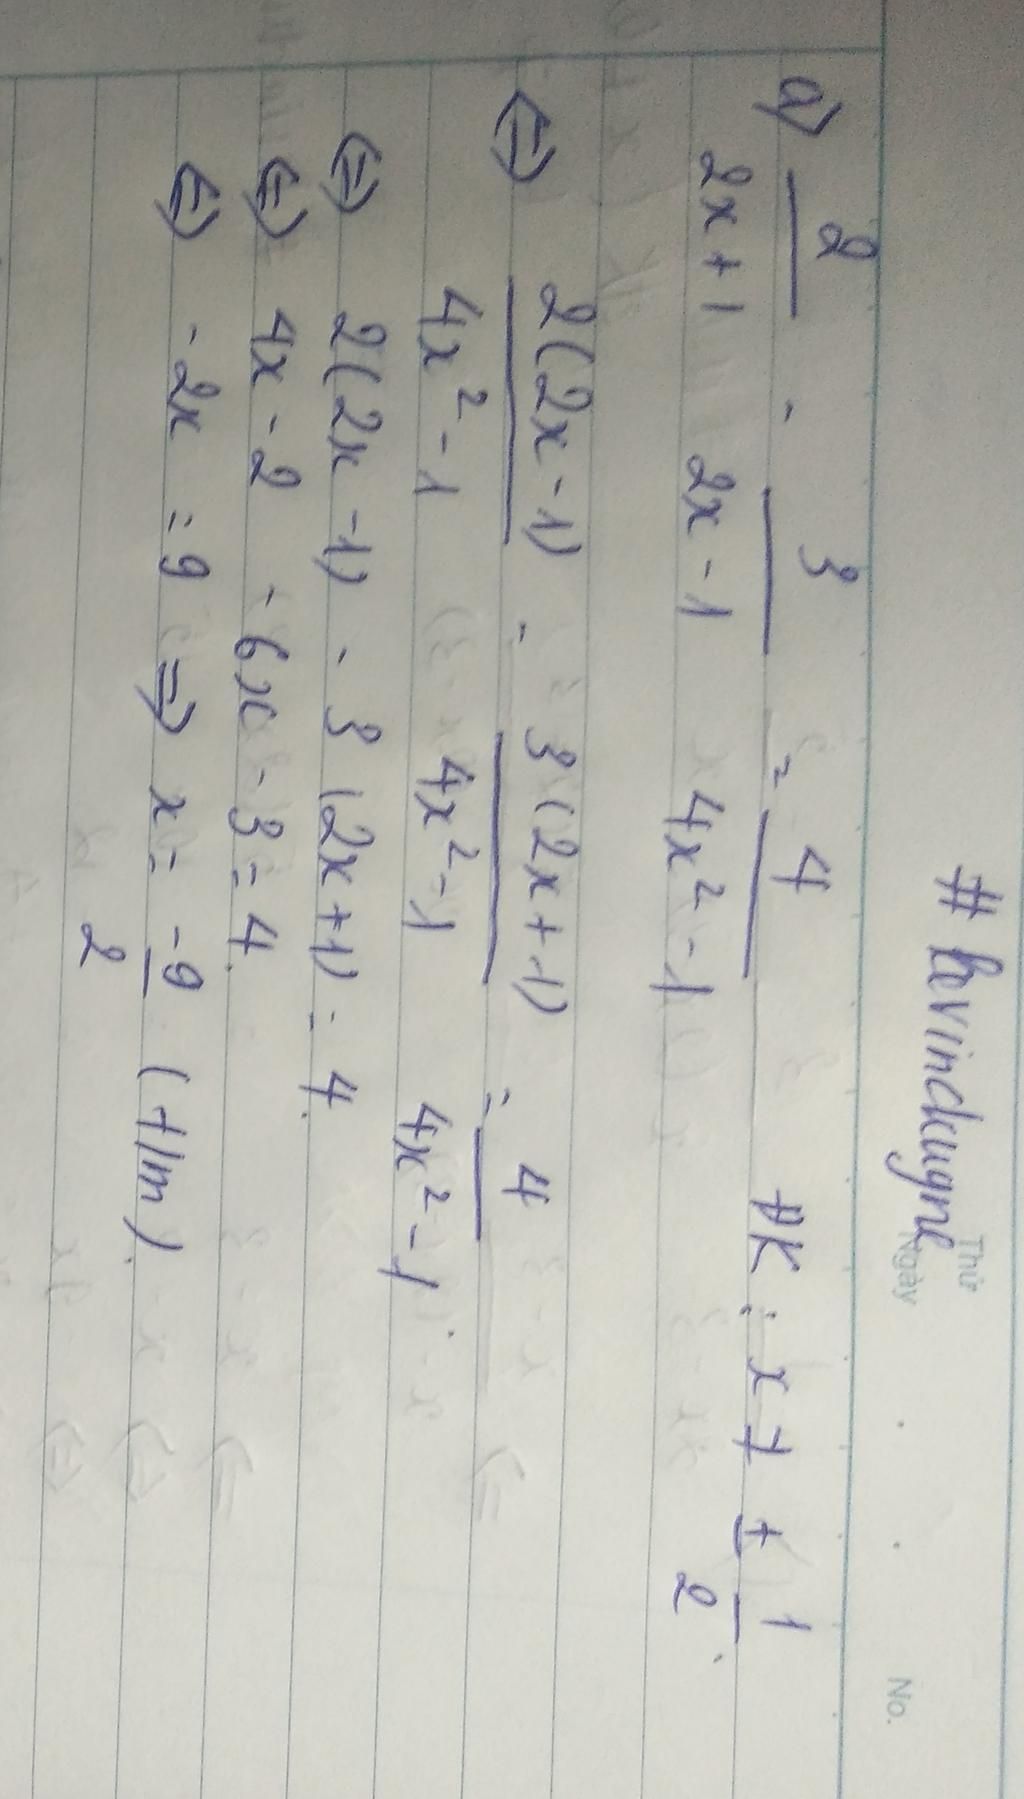 # kevindugne
Thứ
Ngày
No.
a) 2/(2x + 1) - 3/(2x - 1) = 4/(4x² - 1) ĐK : x ≠ ± 1/2.
<=> 2(2x - 1)/(4x² - 1) - 3(2x + 1)/(4x² - 1) = 4/(4x² - 1).
<=> 2(2x - 1) - 3(2x + 1) = 4.
<=> 4x - 2 - 6x - 3 = 4.
<=> -2x = 9 => x = -9/2 (t/m).